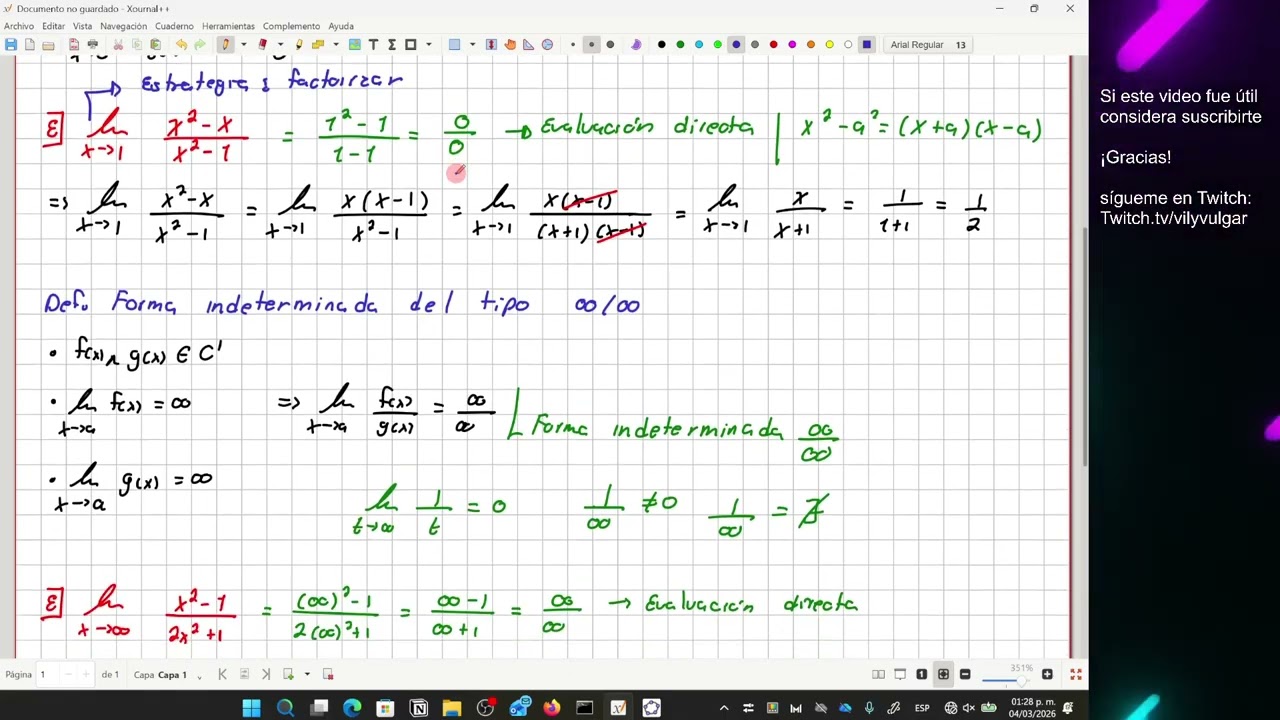 Documento no guardado - Xournal++
Archivo Editar Vista Navegación Cuaderno Herramientas Complemento Ayuda
Arial Regular 13
Estrategia : factorizar
E lim x→1 x²-x / x²-1 = 1²-1 / 1-1 = 0/0 → Evaluación directa | x²-a²=(x+a)(x-a)
⇒ lim x→1 x²-x / x²-1 = lim x→1 x(x-1) / x²-1 = lim x→1 x(x-1) / (x+1)(x-1) = lim x→1 x / x+1 = 1 / 1+1 = 1/2
Def. Forma indeterminada del tipo ∞/∞
• f(x) ∧ g(x) ∈ C'
• lim x→a f(x) = ∞ ⇒ lim x→a f(x)/g(x) = ∞/∞ | Forma indeterminada ∞/∞
• lim x→a g(x) = ∞
lim t→∞ 1/t = 0 1/∞ ≠ 0 1/∞ = ∄
E lim x→∞ x²-1 / 2x²+1 = (∞)²-1 / 2(∞)²+1 = ∞-1 / ∞+1 = ∞/∞ → Evaluación directa
Página 1 de 1 Capa Capa 1
351%
ESP
01:28 p. m.
04/03/2026
Si este video fue útil
considera suscribirte
¡Gracias!
sígueme en Twitch:
Twitch.tv/vilyvulgar